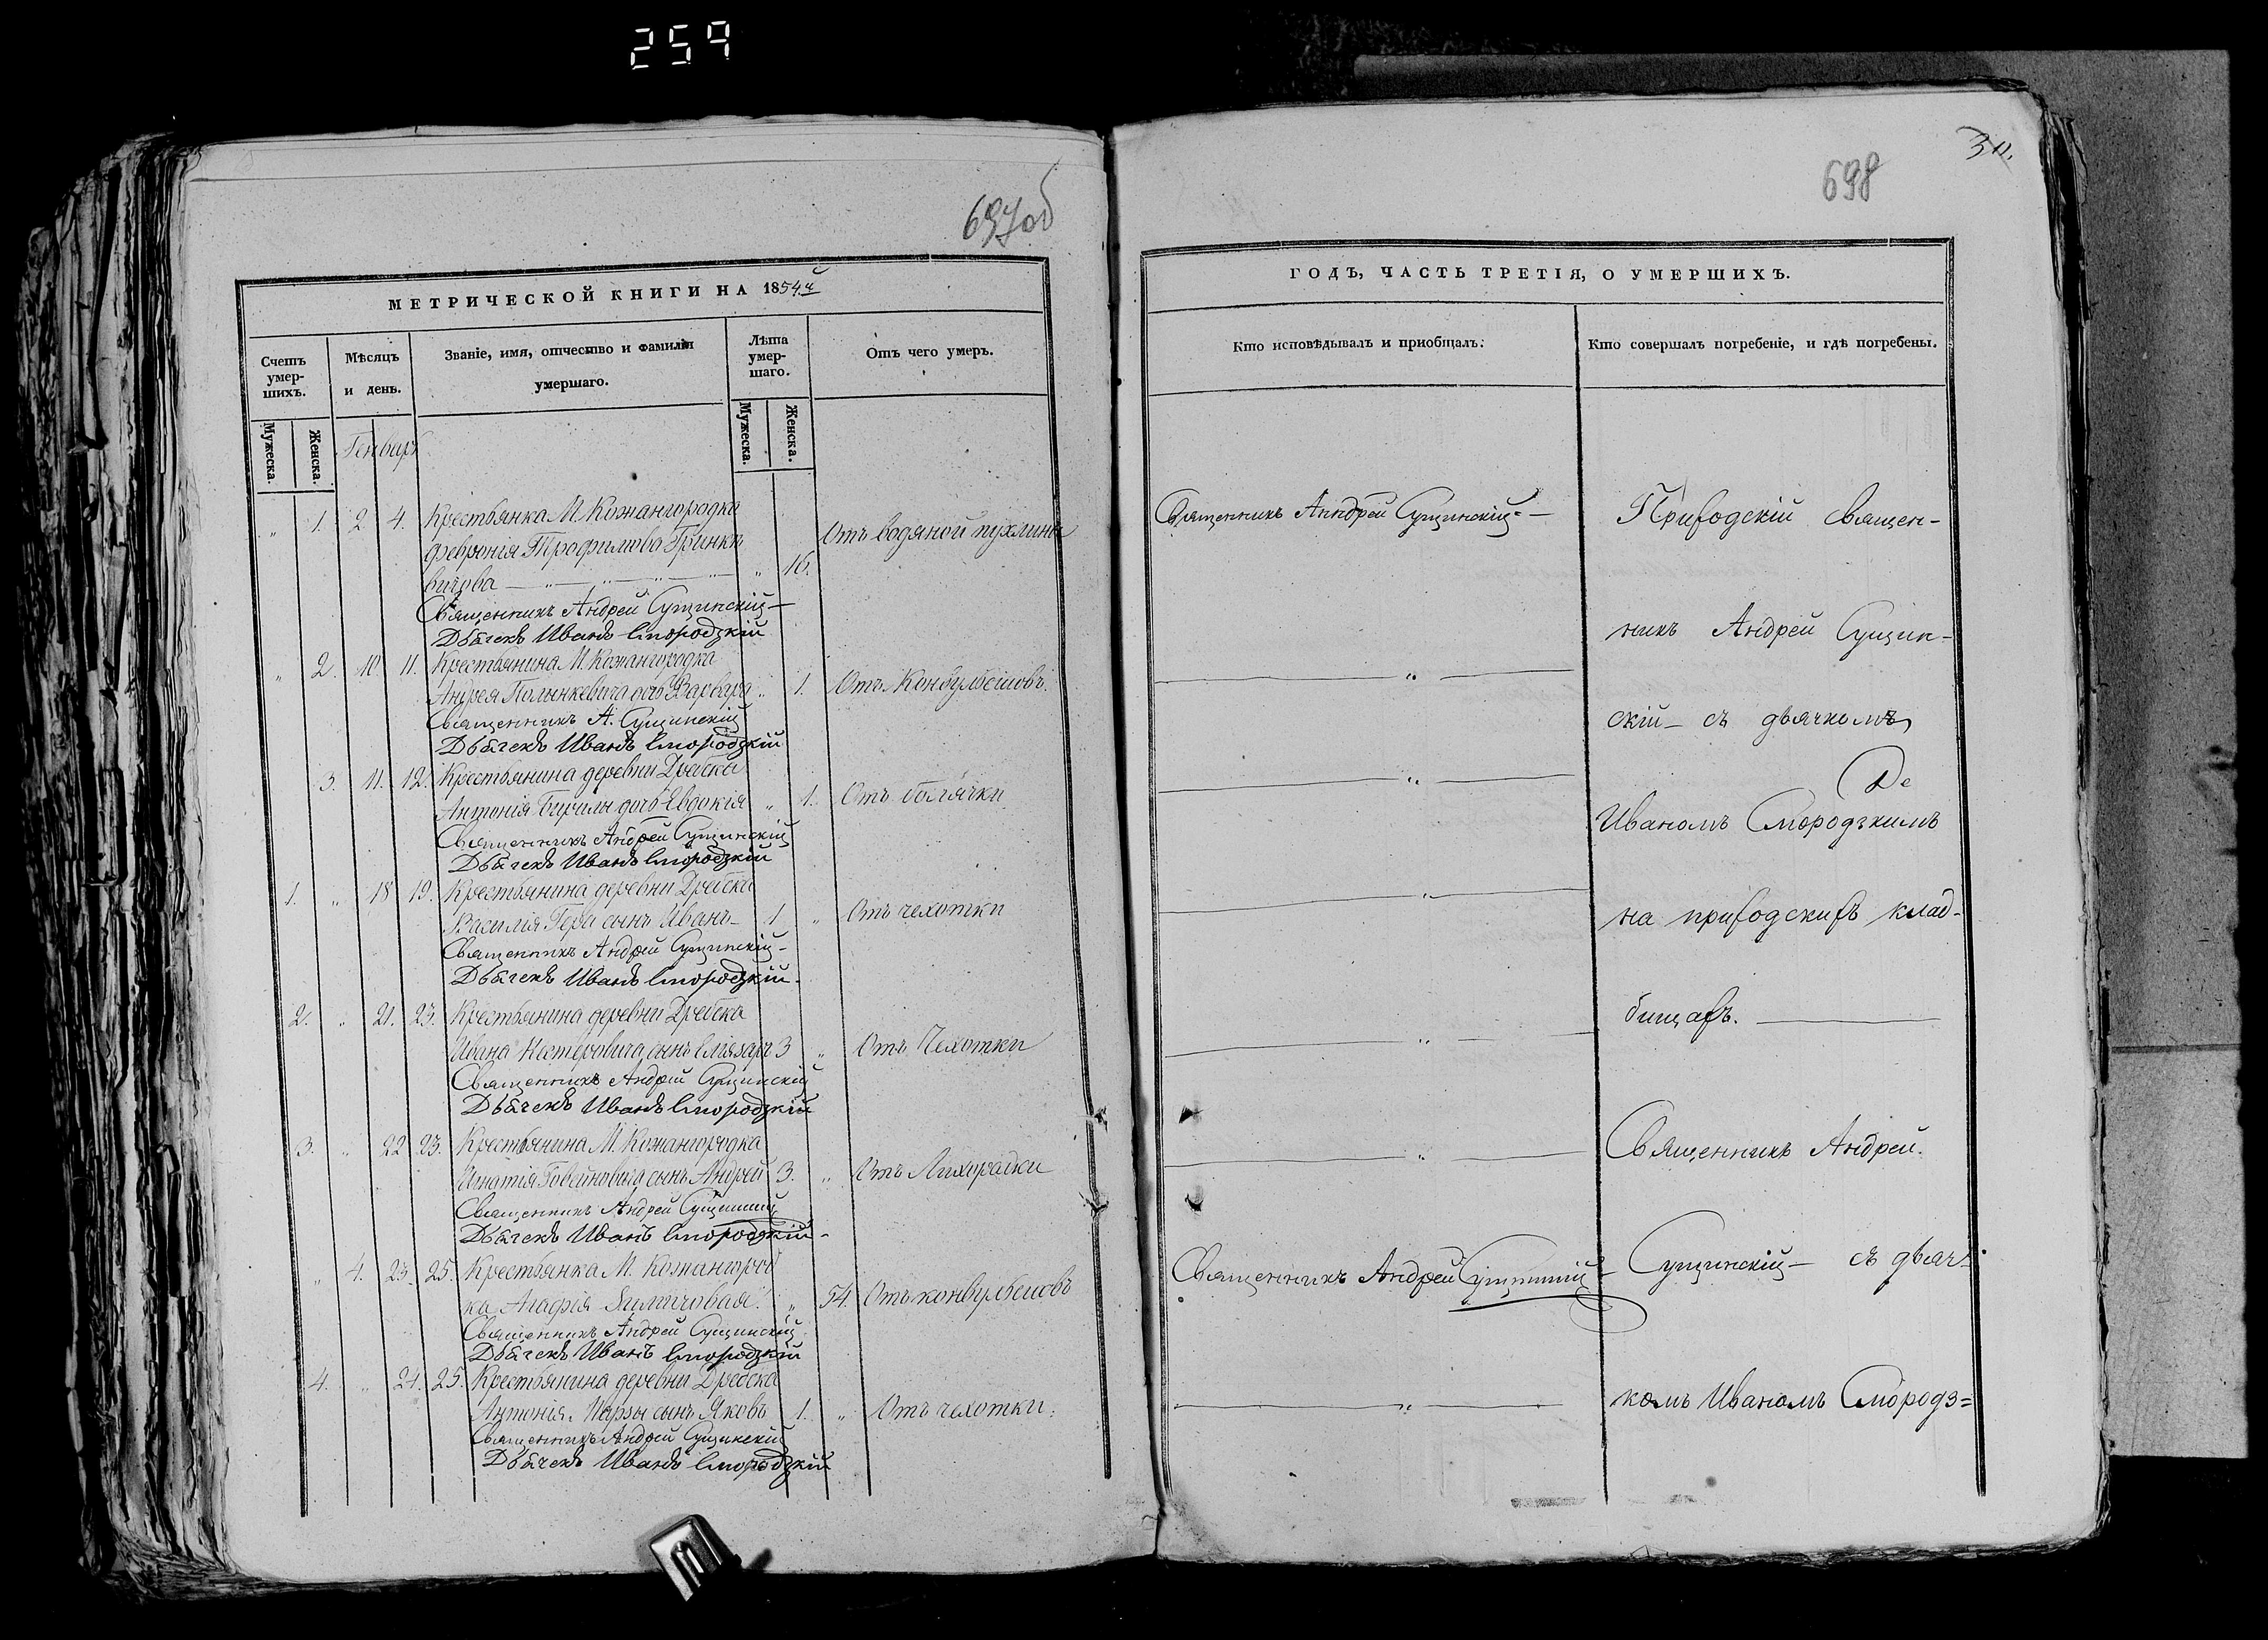 259
697об
МЕТРИЧЕСКОЙ КНИГИ НА 1854.й
Счетъ умер-шихъ.
Мѣсяцъ и день.
Званіе, имя, отчество и фамилія умершаго.
Лѣта умер-шаго.
Отъ чего умеръ.
Мужеска. Женска.
Генварь
Мужеска. Женска.
„ 1. 2 4. Крестьянка М. Кожангородка
Февронія Трофимова Гринке
вичова „ 16. Отъ водяной пухлины
Священникъ Андрей Сущинскій
Дьячекъ Иванъ Смородзкій
„ 2. 10. 11. Крестьянина М. Кожангородка
Андрея Полынкевича дочь Варвара „ 1. Отъ Конвульсіовъ.
Священникъ А. Сущинскій
Дьячекъ Иванъ Смородзкій
3. 11. 12. Крестьянина деревни Дребска
Антонія Бирилы дочь Евдокія „ 1. Отъ болячки
Священникъ Андрей Сущинскій
Дьячекъ Иванъ Смородзкій
1. „ 18 19. Крестьянина деревни Дребска
Василія сынъ Иванъ 1 „ Отъ чехотки
Священникъ Андрей Сущинскій
Дьячекъ Иванъ Смородзкій.
2. „ 21. 23. Крестьянина деревни Дребска
Ивана Нестеровича сынъ 3 „ Отъ Чехотки
Священникъ Андрей Сущинскій
Дьячекъ Иванъ Смородзкій
3. „ 22 23. Крестьянина М. Кожангородка
сынъ Андрей 3. „ Отъ Лихорадки
Священникъ Андрей Сущинскій
Дьячекъ Иванъ Смородзкій
„ 4. 23. 25. Крестьянка М. Кожангород
ка Агафія „ 54. Отъ конвульсиовъ
Священникъ Андрей Сущинскій
Дьячекъ Иванъ Смородзкій
4. „ 24. 25. Крестьянина деревни Дребска
Антонія сынъ Яковъ 1. „ Отъ чехотки.
Священникъ Андрей Сущинскій
Дьячекъ Иванъ Смородзкій
698
ГОДЪ, ЧАСТЬ ТРЕТІЯ, О УМЕРШИХЪ.
Кто исповѣдывалъ и приобщалъ.
Кто совершалъ погребеніе, и гдѣ погребены.
Священникъ Андрей Сущинскій
„
„
„
„
„
Священникъ Андрей Сущинскій
„
Приходскій священ-
никъ Андрей Сущин-
скій съ дьячкомъ
Иваномъ Смородзкимъ
на приходскихъ клад-
бищахъ.
Священникъ Андрей
Сущинскій съ дьяч-
комъ Иваномъ Смородз=